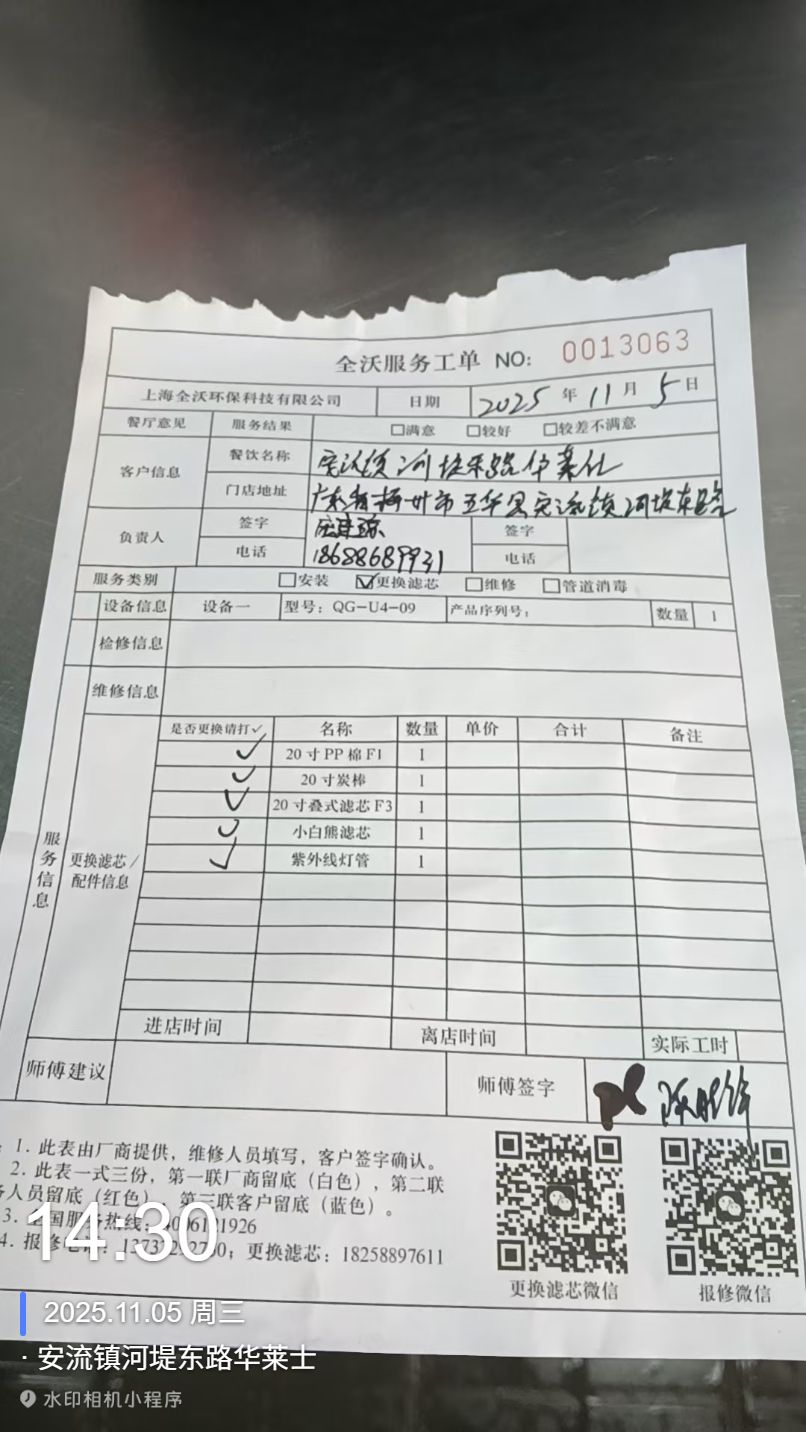 全沃服务工单 NO: 0013063
上海全沃环保科技有限公司 日期 2025年11月5日
餐厅意见 服务结果 □满意 □较好 □较差不满意
客户信息 餐饮名称 安流镇河堤东路华莱仕
门店地址 广东省梅州市五华县安流镇河堤东路
负责人 签字 签字
电话 18688689931 电话
服务类别 □安装 ☑更换滤芯 □维修 □管道消毒
设备信息 设备一 型号: QG-U4-09 产品序列号: 数量 1
检修信息
维修信息
服务信息
更换滤芯/
配件信息
是否更换请打✓ 名称 数量 单价 合计 备注
✓ 20寸PP棉F1 1
✓ 20寸炭棒 1
✓ 20寸叠式滤芯F3 1
✓ 小白熊滤芯 1
✓ 紫外线灯管 1
进店时间 离店时间 实际工时
师傅建议 师傅签字
1. 此表由厂商提供，维修人员填写，客户签字确认。
2. 此表一式三份，第一联厂商留底（白色），第二联
务人员留底（红色），第三联客户留底（蓝色）。
3. 全国服务热线:
4. 报修电话: 更换滤芯: 18258897611
更换滤芯微信 报修微信
14:30
2025.11.05 周三
· 安流镇河堤东路华莱士
水印相机小程序